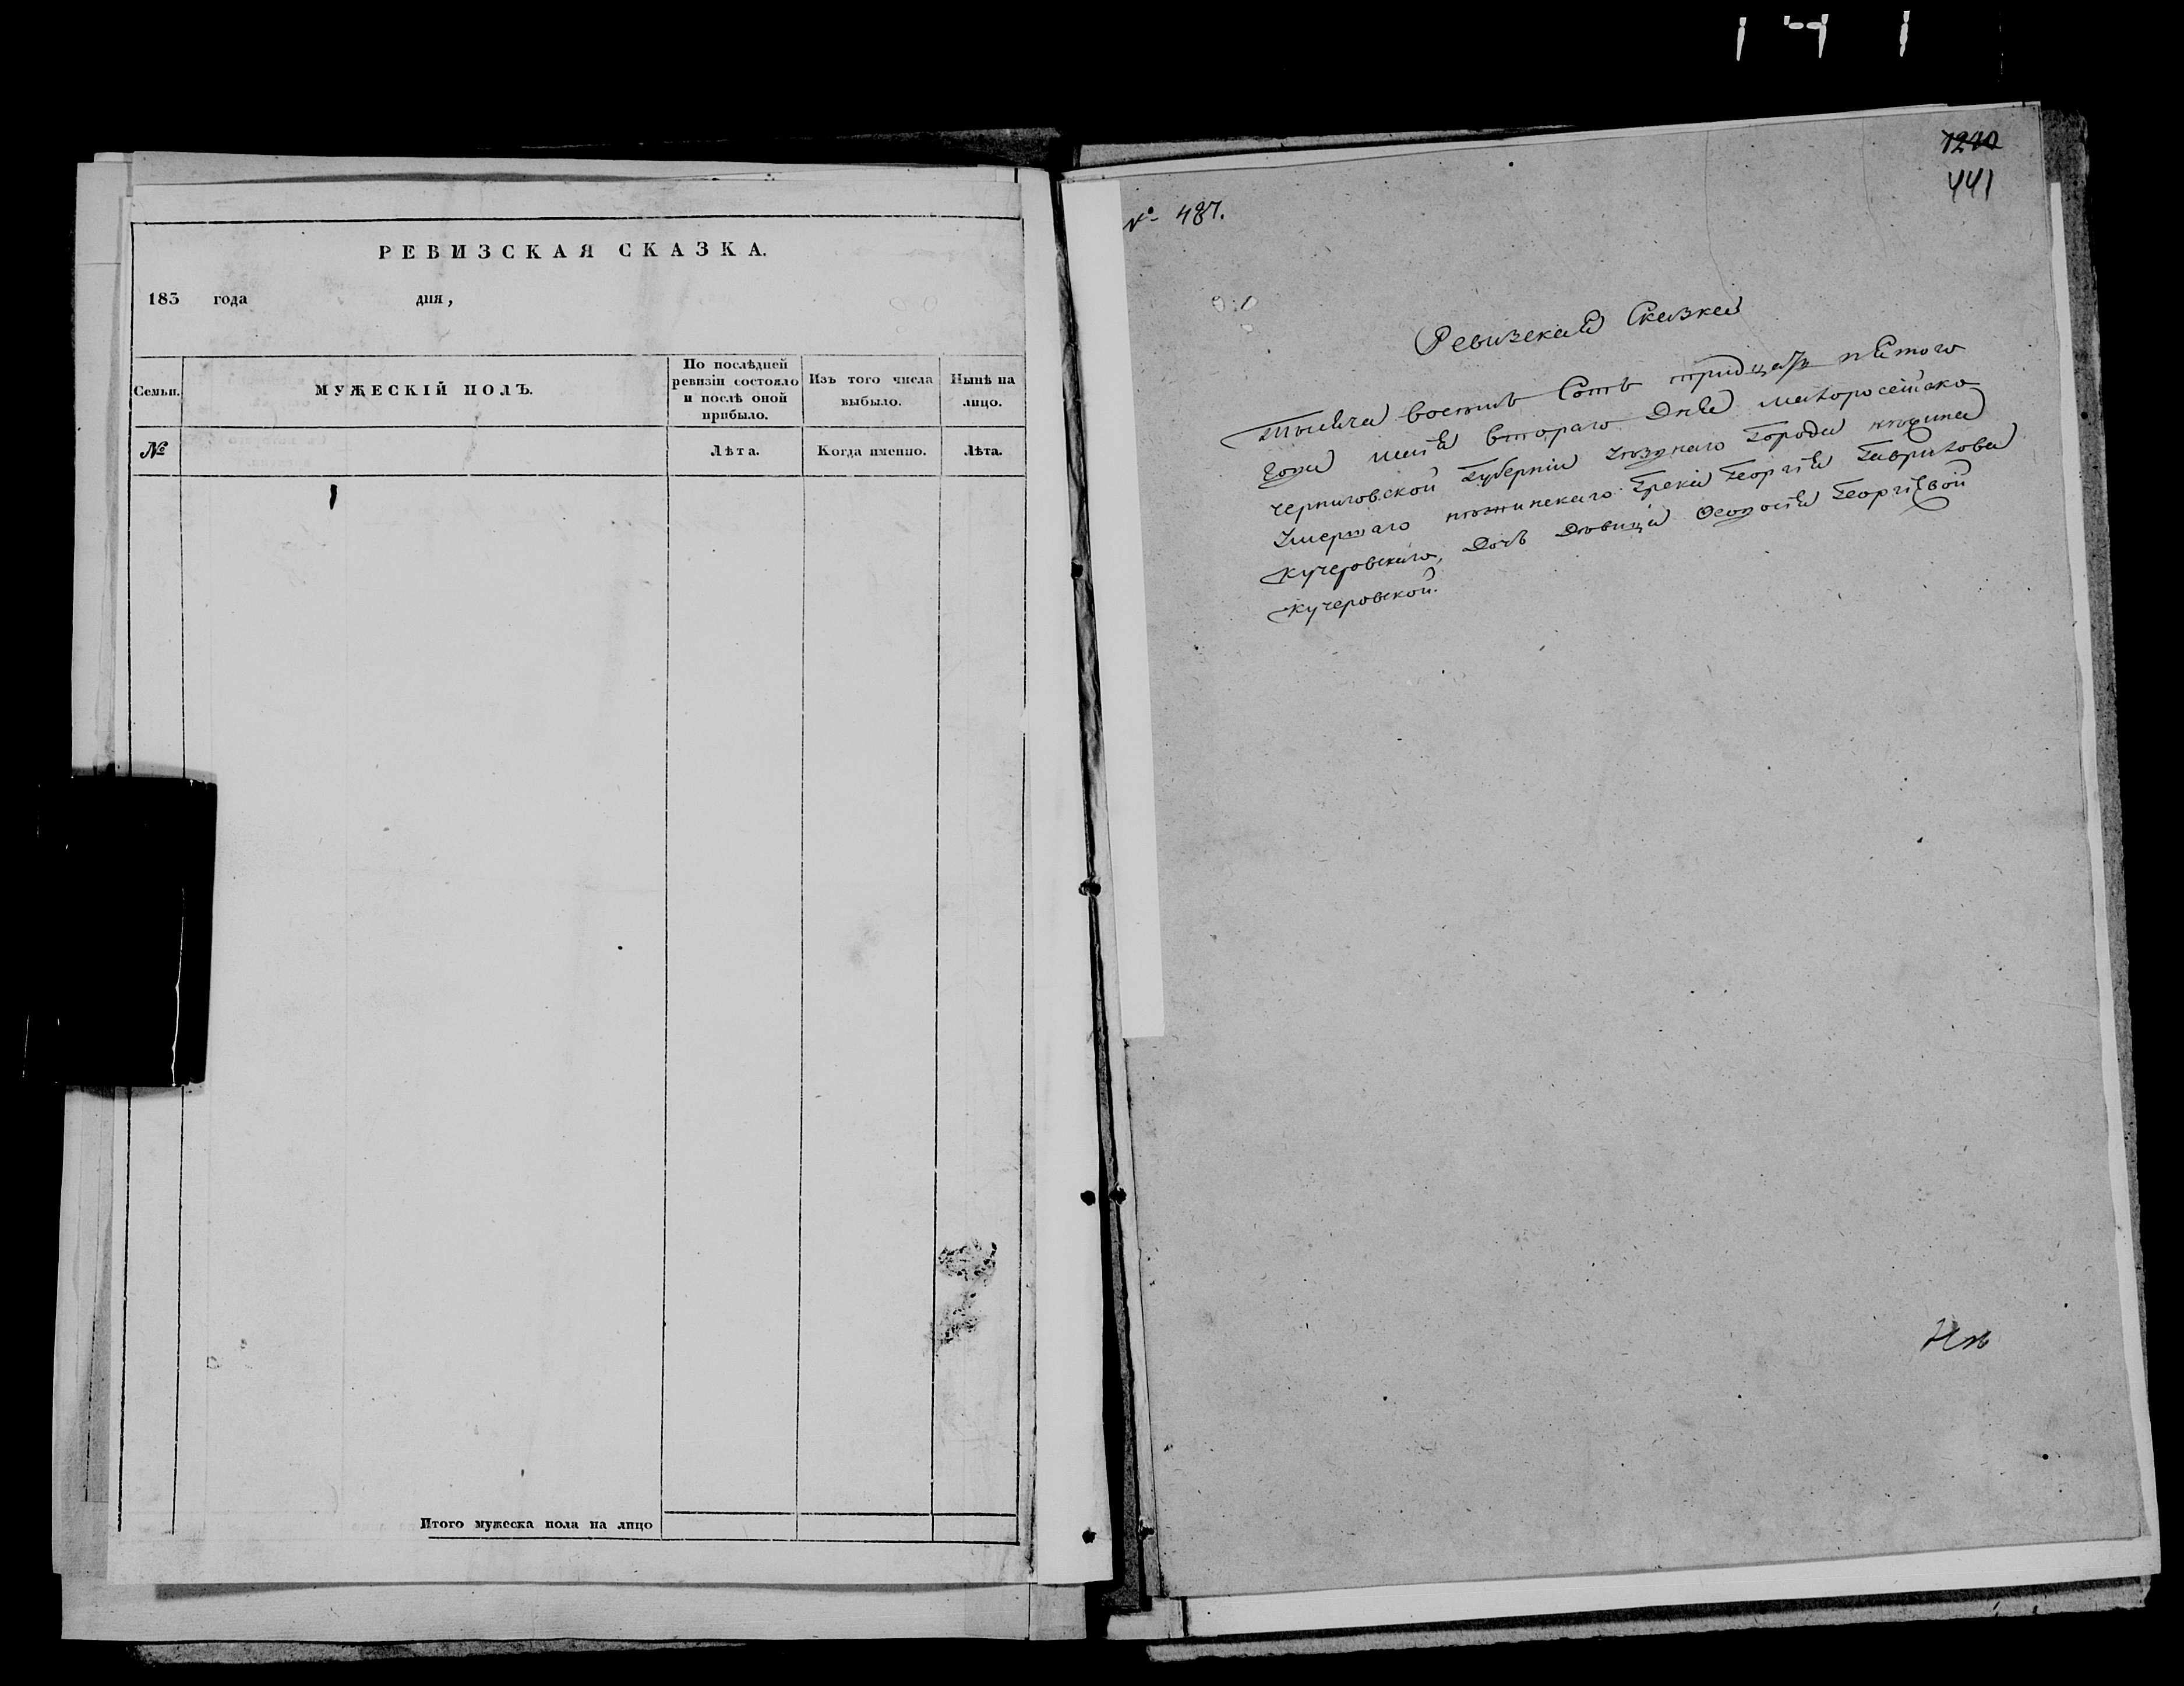 РЕВИЗСКАЯ СКАЗКА.
183 года дня,
Семьи.
МУЖЕСКІЙ ПОЛЪ.
По послѣдней
ревизіи состояло
и послѣ оной
прибыло.
Изъ того числа
выбыло.
Нынѣ на
лицо.
№
Лѣта.
Когда именно.
Лѣта.
Итого мужеска пола на лицо
1240
441
№ 487.
Ревизская Сказка
Тысяча восемь Сотъ тридцать пятого
Года мая втораго Дня малоросейско
черниговской Губерніи уезднаго Города нежина
умершаго нежинскаго Грека Георгія Гаврилова
кучеровскаго, Дочь Девица Феодосія Георгіевой
кучеровской.